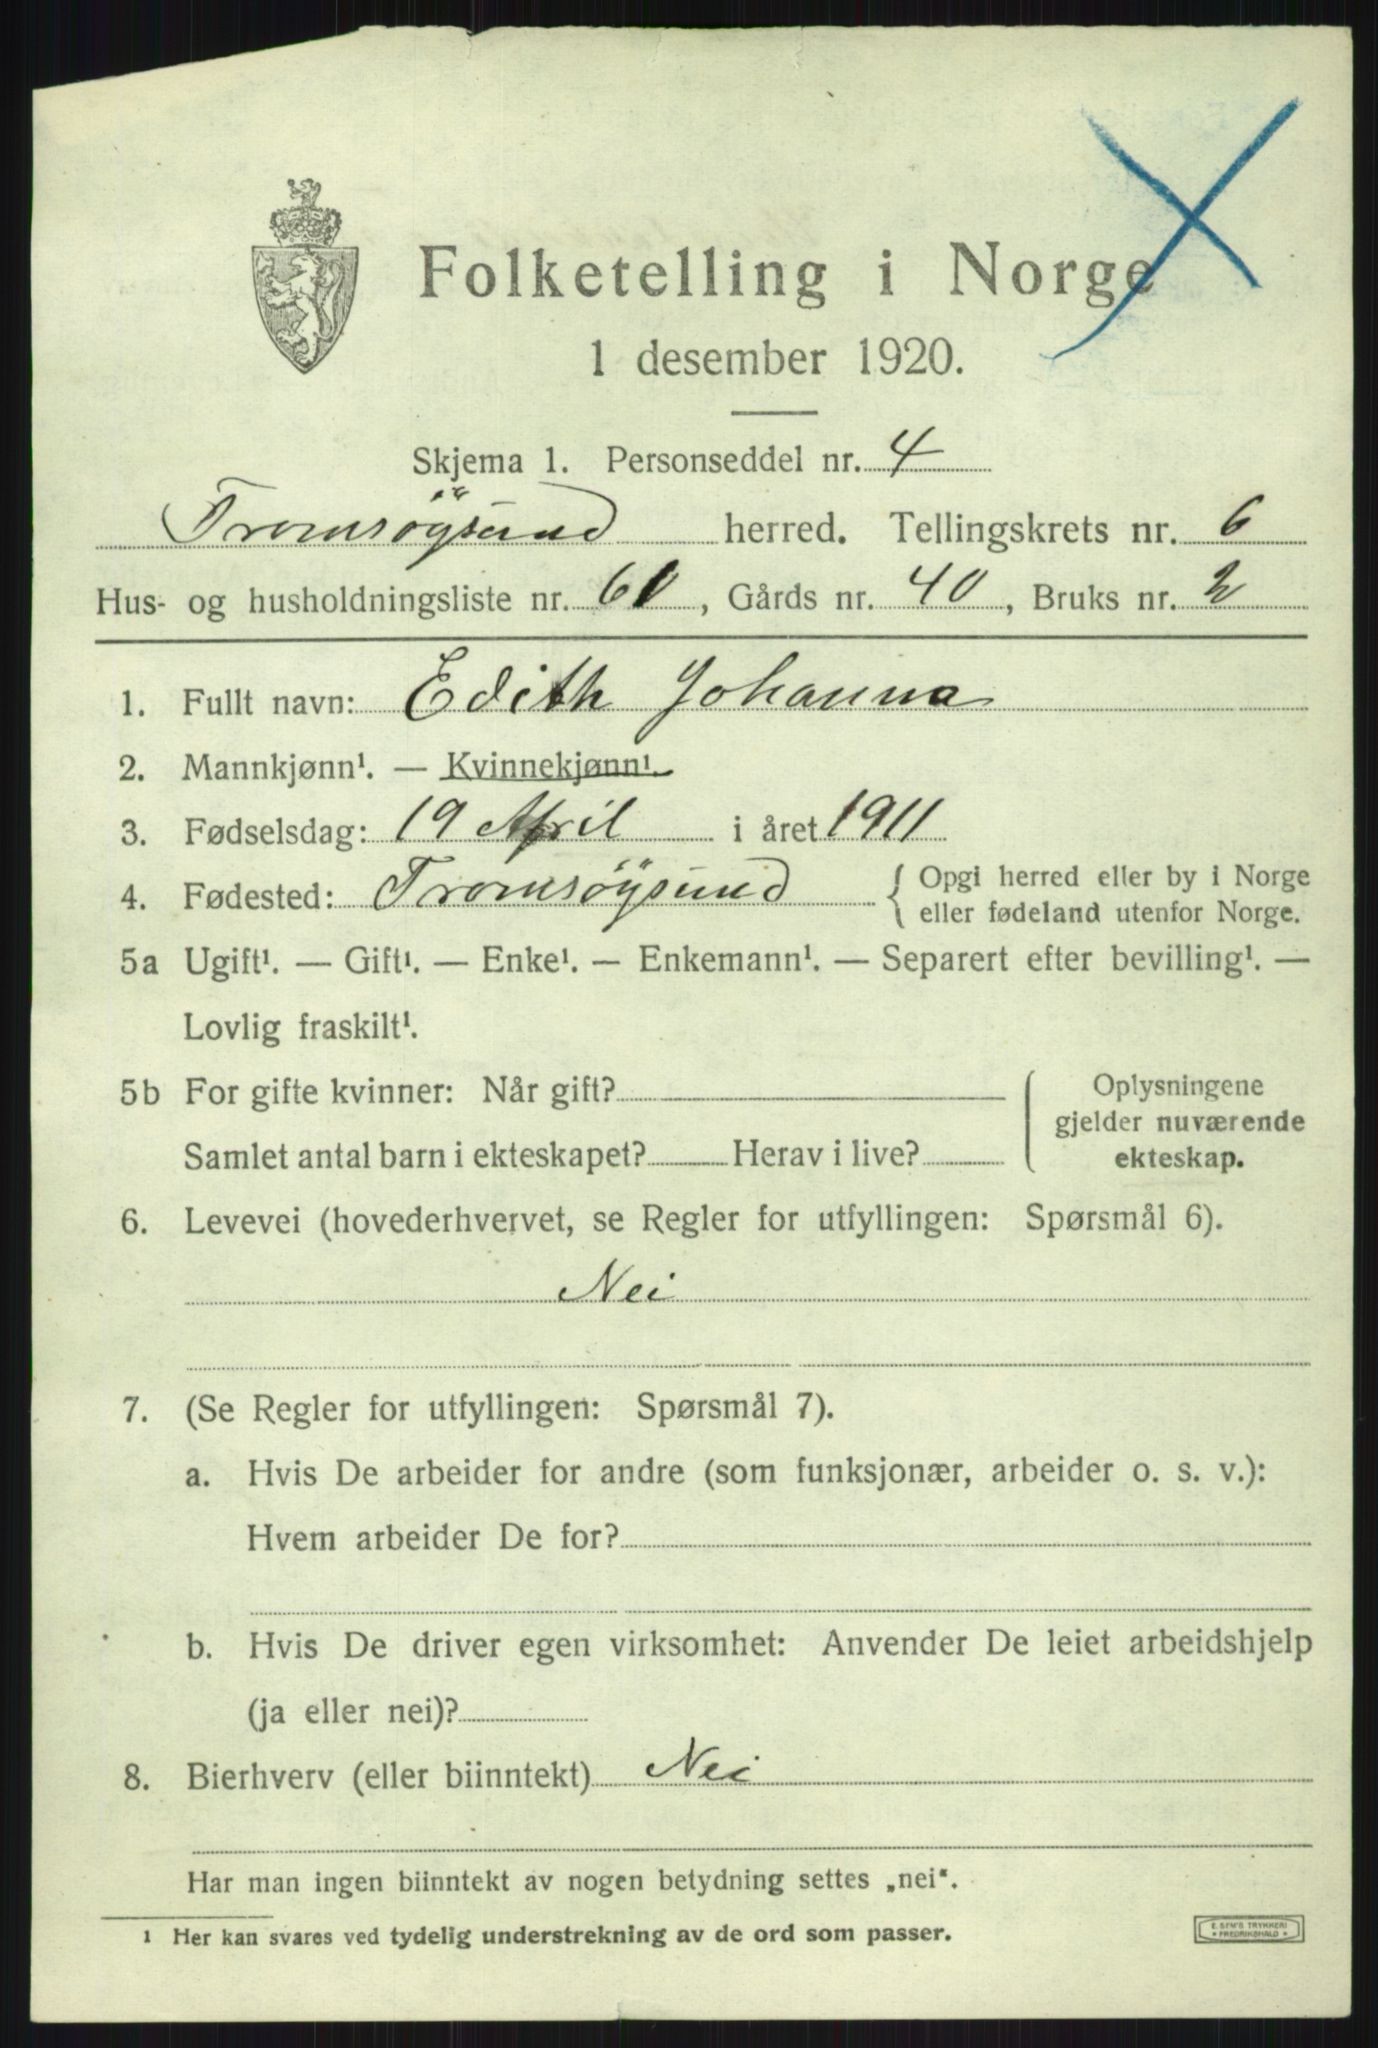 Folketelling i Norge
1 desember 1920.
Skjema 1. Personseddel nr. 4
Tromsöysund herred. Tellingskrets nr. 6
Hus- og husholdningsliste nr. 61, Gårds nr. 40, Bruks nr. 2
1. Fullt navn: Edith Johanna
2. Mannkjønn¹. — Kvinnekjønn¹.
3. Fødselsdag: 19 April i året 1911
4. Fødested: Tromsöysund { Opgi herred eller by i Norge
eller fødeland utenfor Norge.
5a Ugift¹. — Gift¹. — Enke¹. — Enkemann¹. — Separert efter bevilling¹. —
Lovlig fraskilt¹.
5b For gifte kvinner: Når gift?
Samlet antal barn i ekteskapet? Herav i live?
Oplysningene
gjelder nuværende
ekteskap.
6. Levevei (hovederhvervet, se Regler for utfyllingen: Spørsmål 6).
Nei
7. (Se Regler for utfyllingen: Spørsmål 7).
a. Hvis De arbeider for andre (som funksjonær, arbeider o. s. v.):
Hvem arbeider De for?
b. Hvis De driver egen virksomhet: Anvender De leiet arbeidshjelp
(ja eller nei)?
8. Bierhverv (eller biinntekt) Nei
Har man ingen biinntekt av nogen betydning settes „nei".
1 Her kan svares ved tydelig understrekning av de ord som passer.
E. SEM'S TRYKKERI
* FREDRIKSHALD *